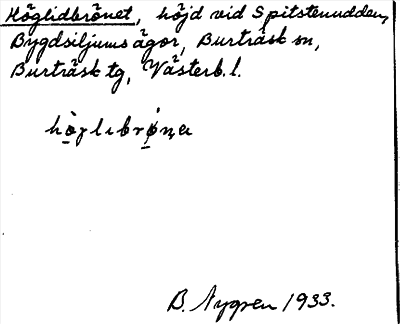 Höglidbrånet, höjd vid Spitstenudden,
Bygdsiljums ägor, Burträsk sn,
Burträsk tg, Västerb. l.
B. Nygren 1933.